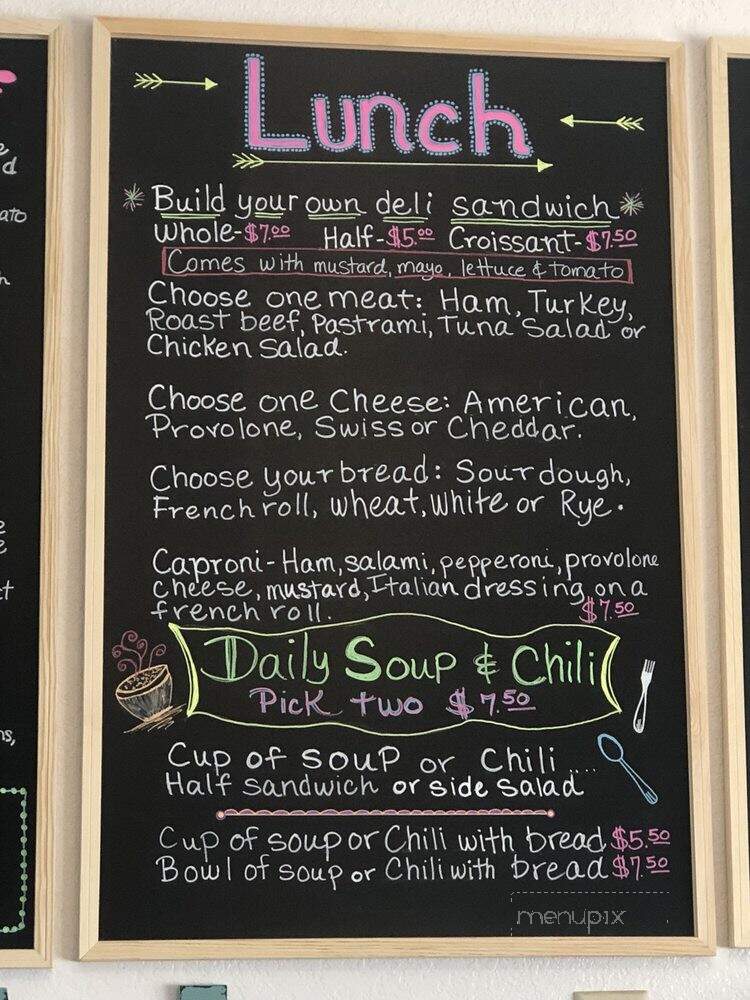 Lunch
Build your own deli sandwich
Whole-$7.00 Half-$5.00 Croissant-$7.50
Comes with mustard, mayo, lettuce & tomato
Choose one meat: Ham, Turkey,
Roast beef, Pastrami, Tuna Salad or
Chicken Salad.
Choose one Cheese: American,
Provolone, Swiss or Cheddar.
Choose your bread: Sourdough,
French roll, wheat, white or Rye.
Caproni-Ham, salami, pepperoni, provolone
cheese, mustard, Italian dressing on a
french roll. $7.50
Daily Soup & Chili
Pick two $7.50
Cup of soup or Chili ....
Half sandwich or side salad
Cup of soup or Chili with bread $5.50
Bowl of soup or Chili with bread $7.50
menupix